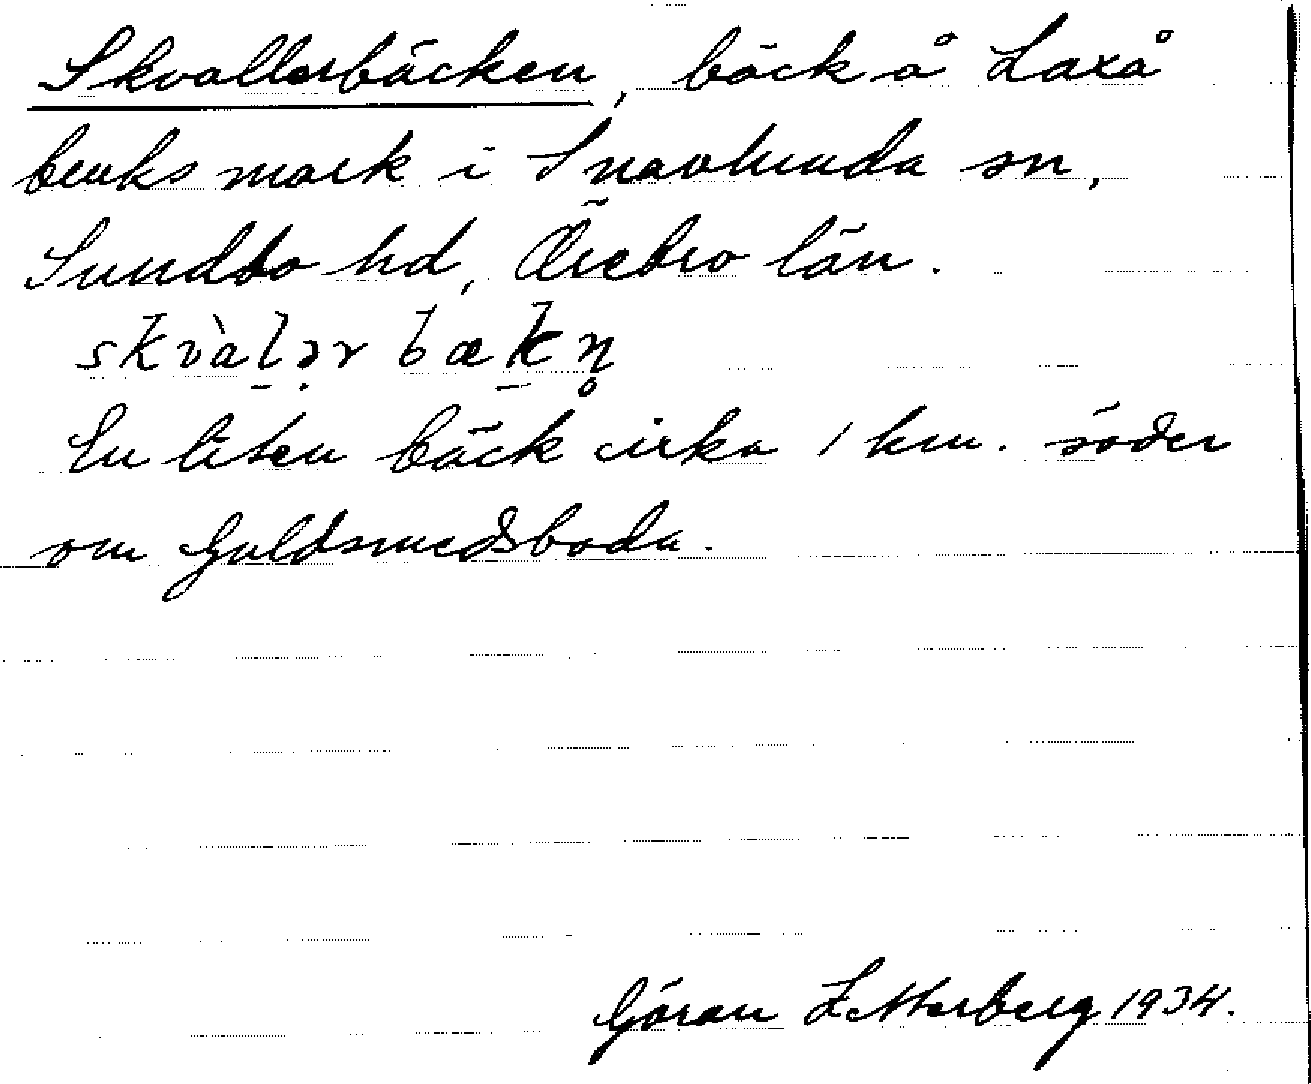 Skvallerbäcken, bäck å Laxå
bruks mark i Snavlunda sn,
Sundbo hd, Örebro län.
skvàl̠ə̣r bæk̠n̥
En liten bäck cirka 1 km. söder
om Guldsmedsboda.
Göran Zetterberg 1934.